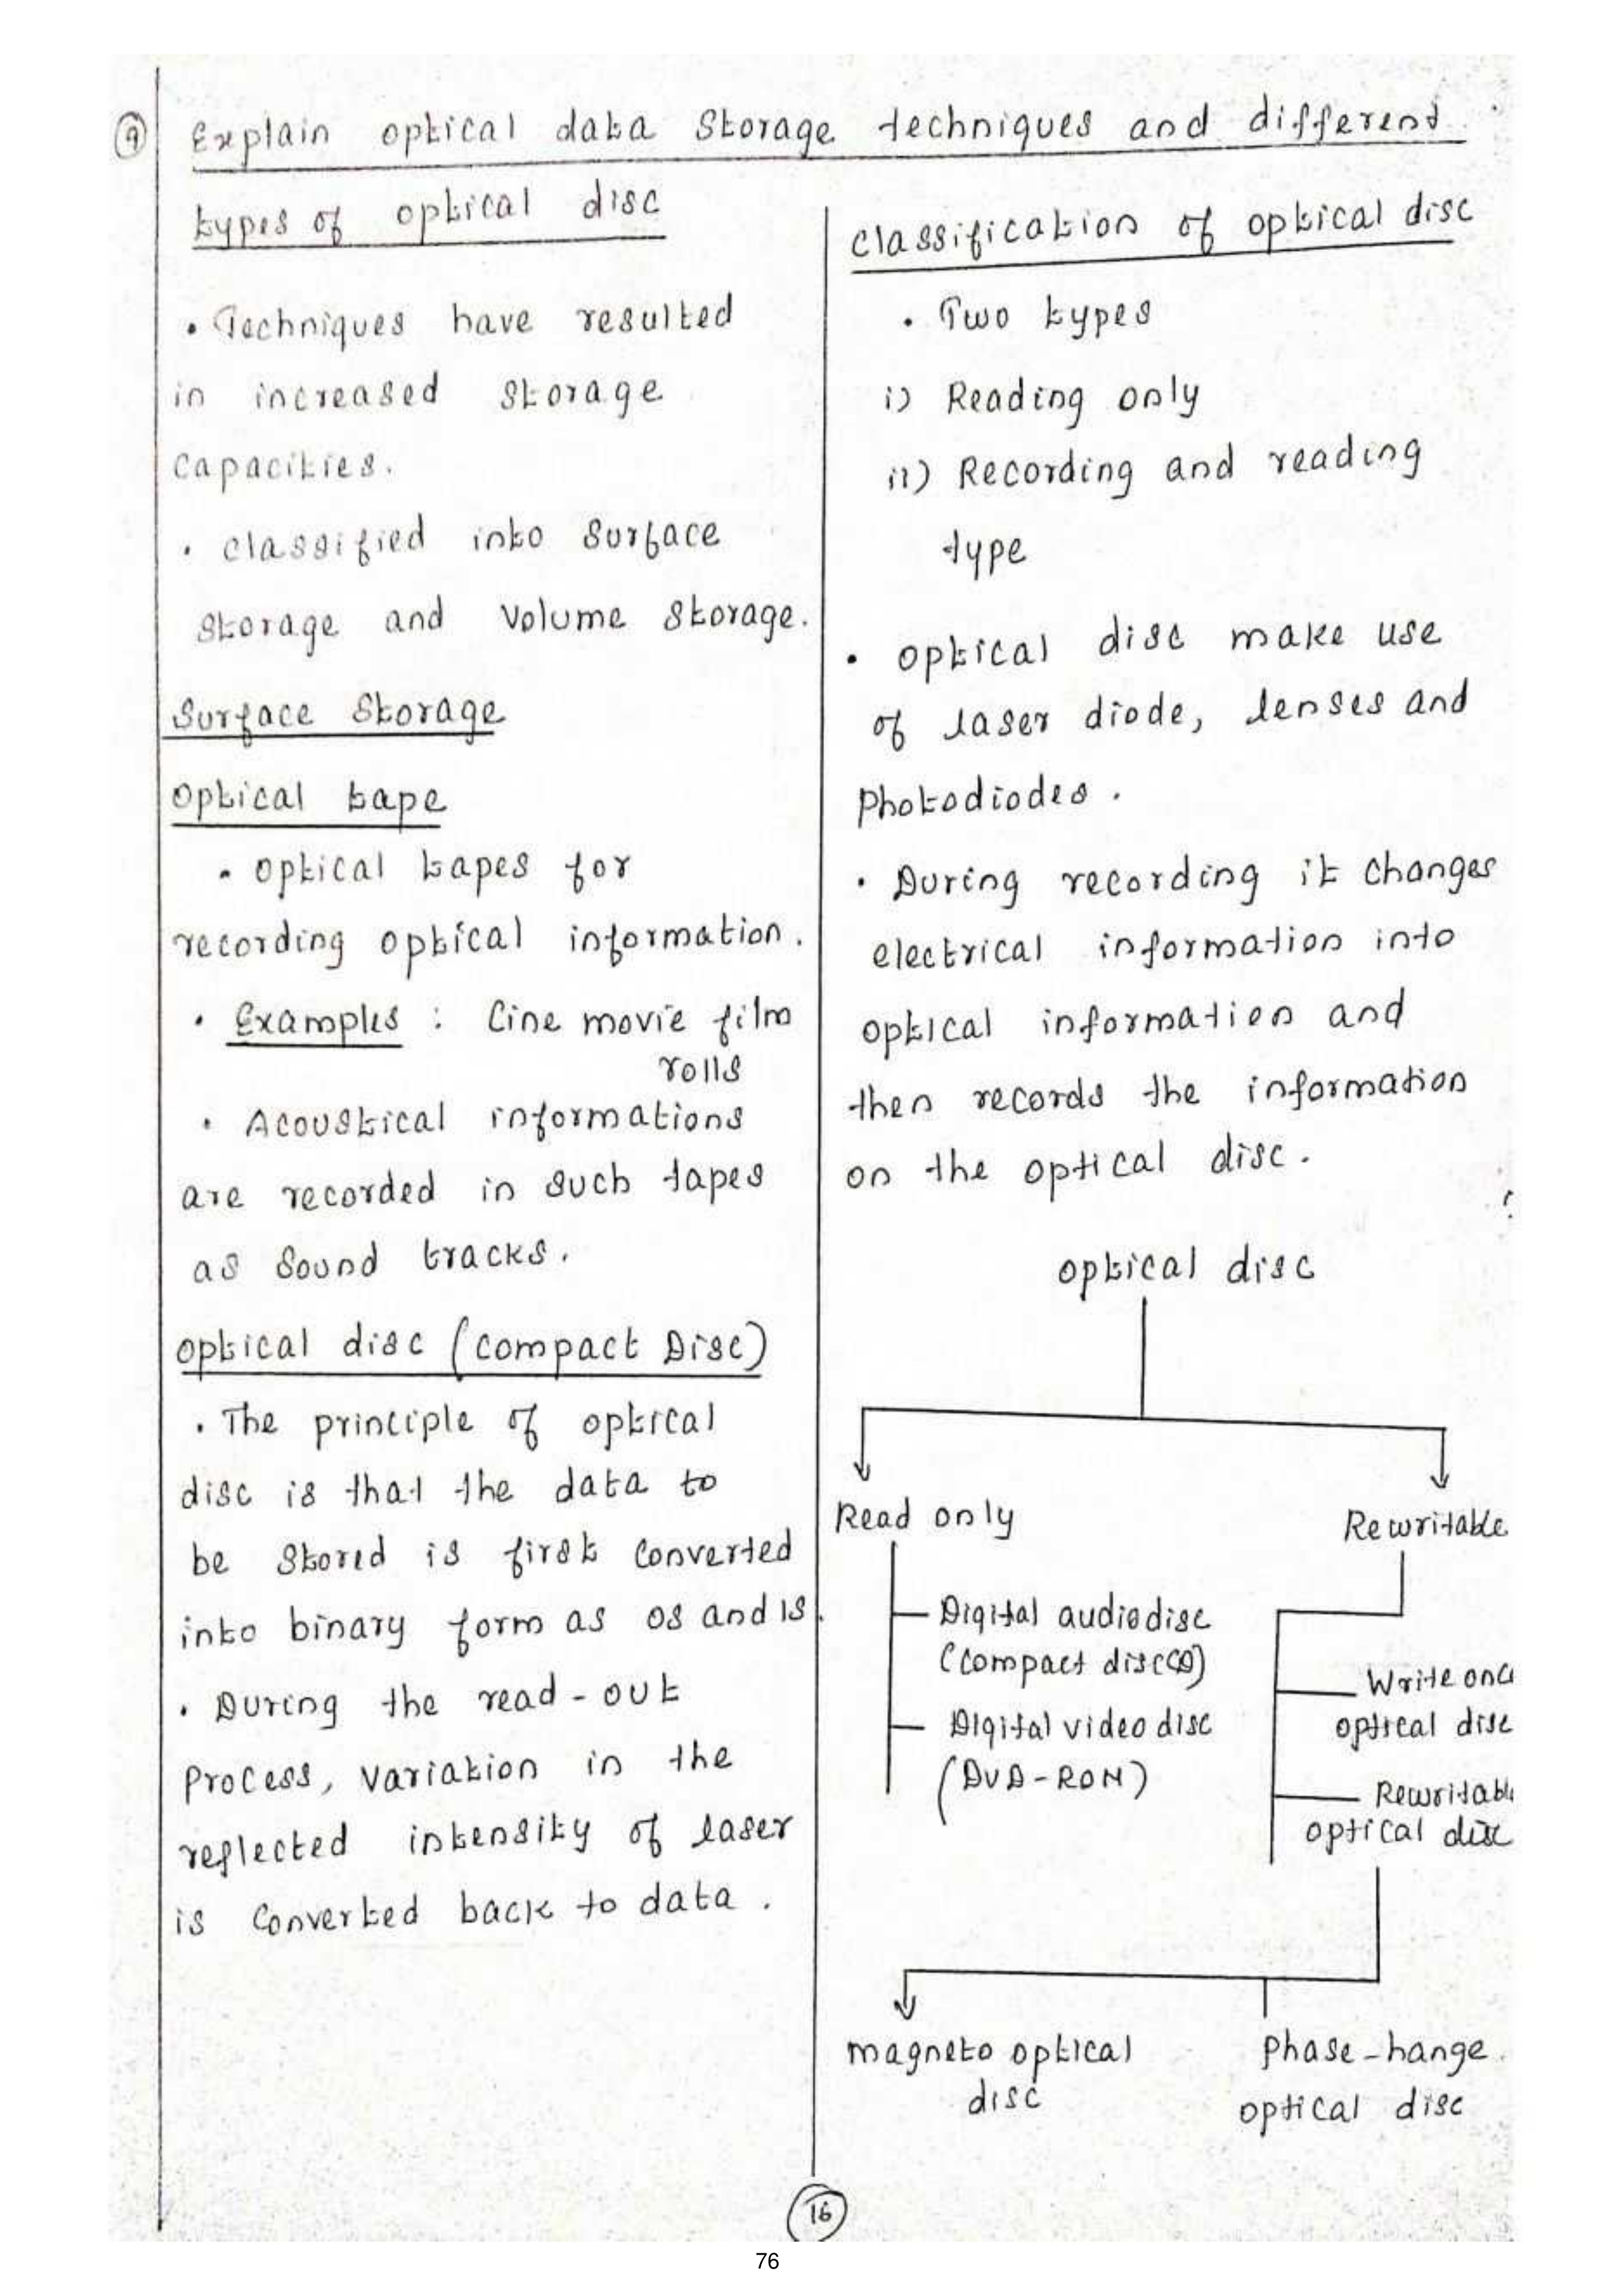 9 Explain optical data storage techniques and different
types of optical disc
• Techniques have resulted
in increased storage
capacities.
• classified into surface
storage and volume storage.
Surface Storage
Optical tape
• optical tapes for
recording optical information.
• Examples : Cine movie film
rolls
• Acoustical informations
are recorded in such tapes
as sound tracks.
optical disc (compact Disc)
• The principle of optical
disc is that the data to
be stored is first converted
into binary form as 0s and 1s.
• During the read-out
process, variation in the
reflected intensity of laser
is converted back to data.
classification of optical disc
• Two types
i) Reading only
ii) Recording and reading
type
• optical disc make use
of laser diode, lenses and
photodiodes.
• During recording it changes
electrical information into
optical information and
then records the information
on the optical disc.
optical disc
Read only
Rewritable
Digital audiodisc
(Compact disc CD)
Digital video disc
(DVD-ROM)
Write onc
optical disc
Rewritabl
optical disc
magneto optical
disc
phase-hange
optical disc
16
76